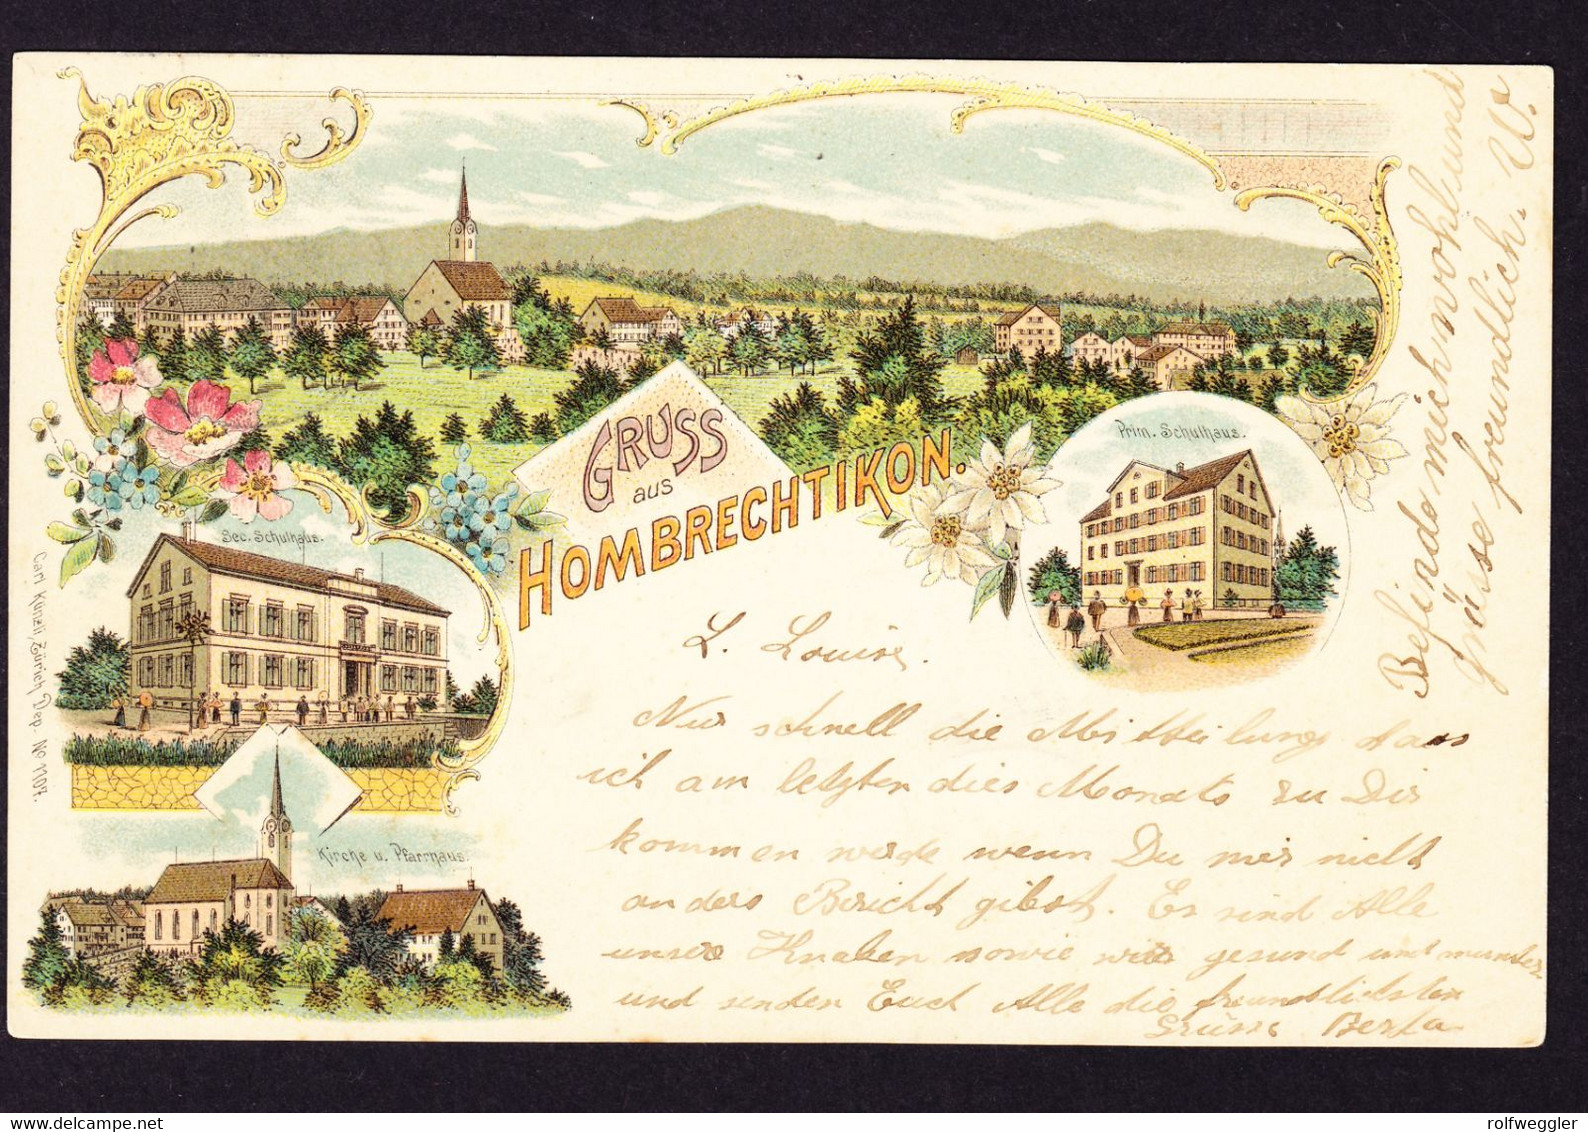 GRUSS
aus
HOMBRECHTIKON.
Prim. Schulhaus.
Sec. Schulhaus.
Kirche u. Pfarrhaus.
Carl Künzli, Zürich Dep. No 1107.
L. Louise.
Nur schnell die Mitteilung dass
ich am letzten dies Monats zu Dir
kommen werde wenn Du mir nicht
anders Bericht gibst. Es sind Alle
unsere Knaben sowie wir gesund und munter
und senden Euch Alle die freundlichsten
Grüsse Berta
Befinde mich wohl und
grüsse freundlich. W.
www.delcampe.net
rolfweggler